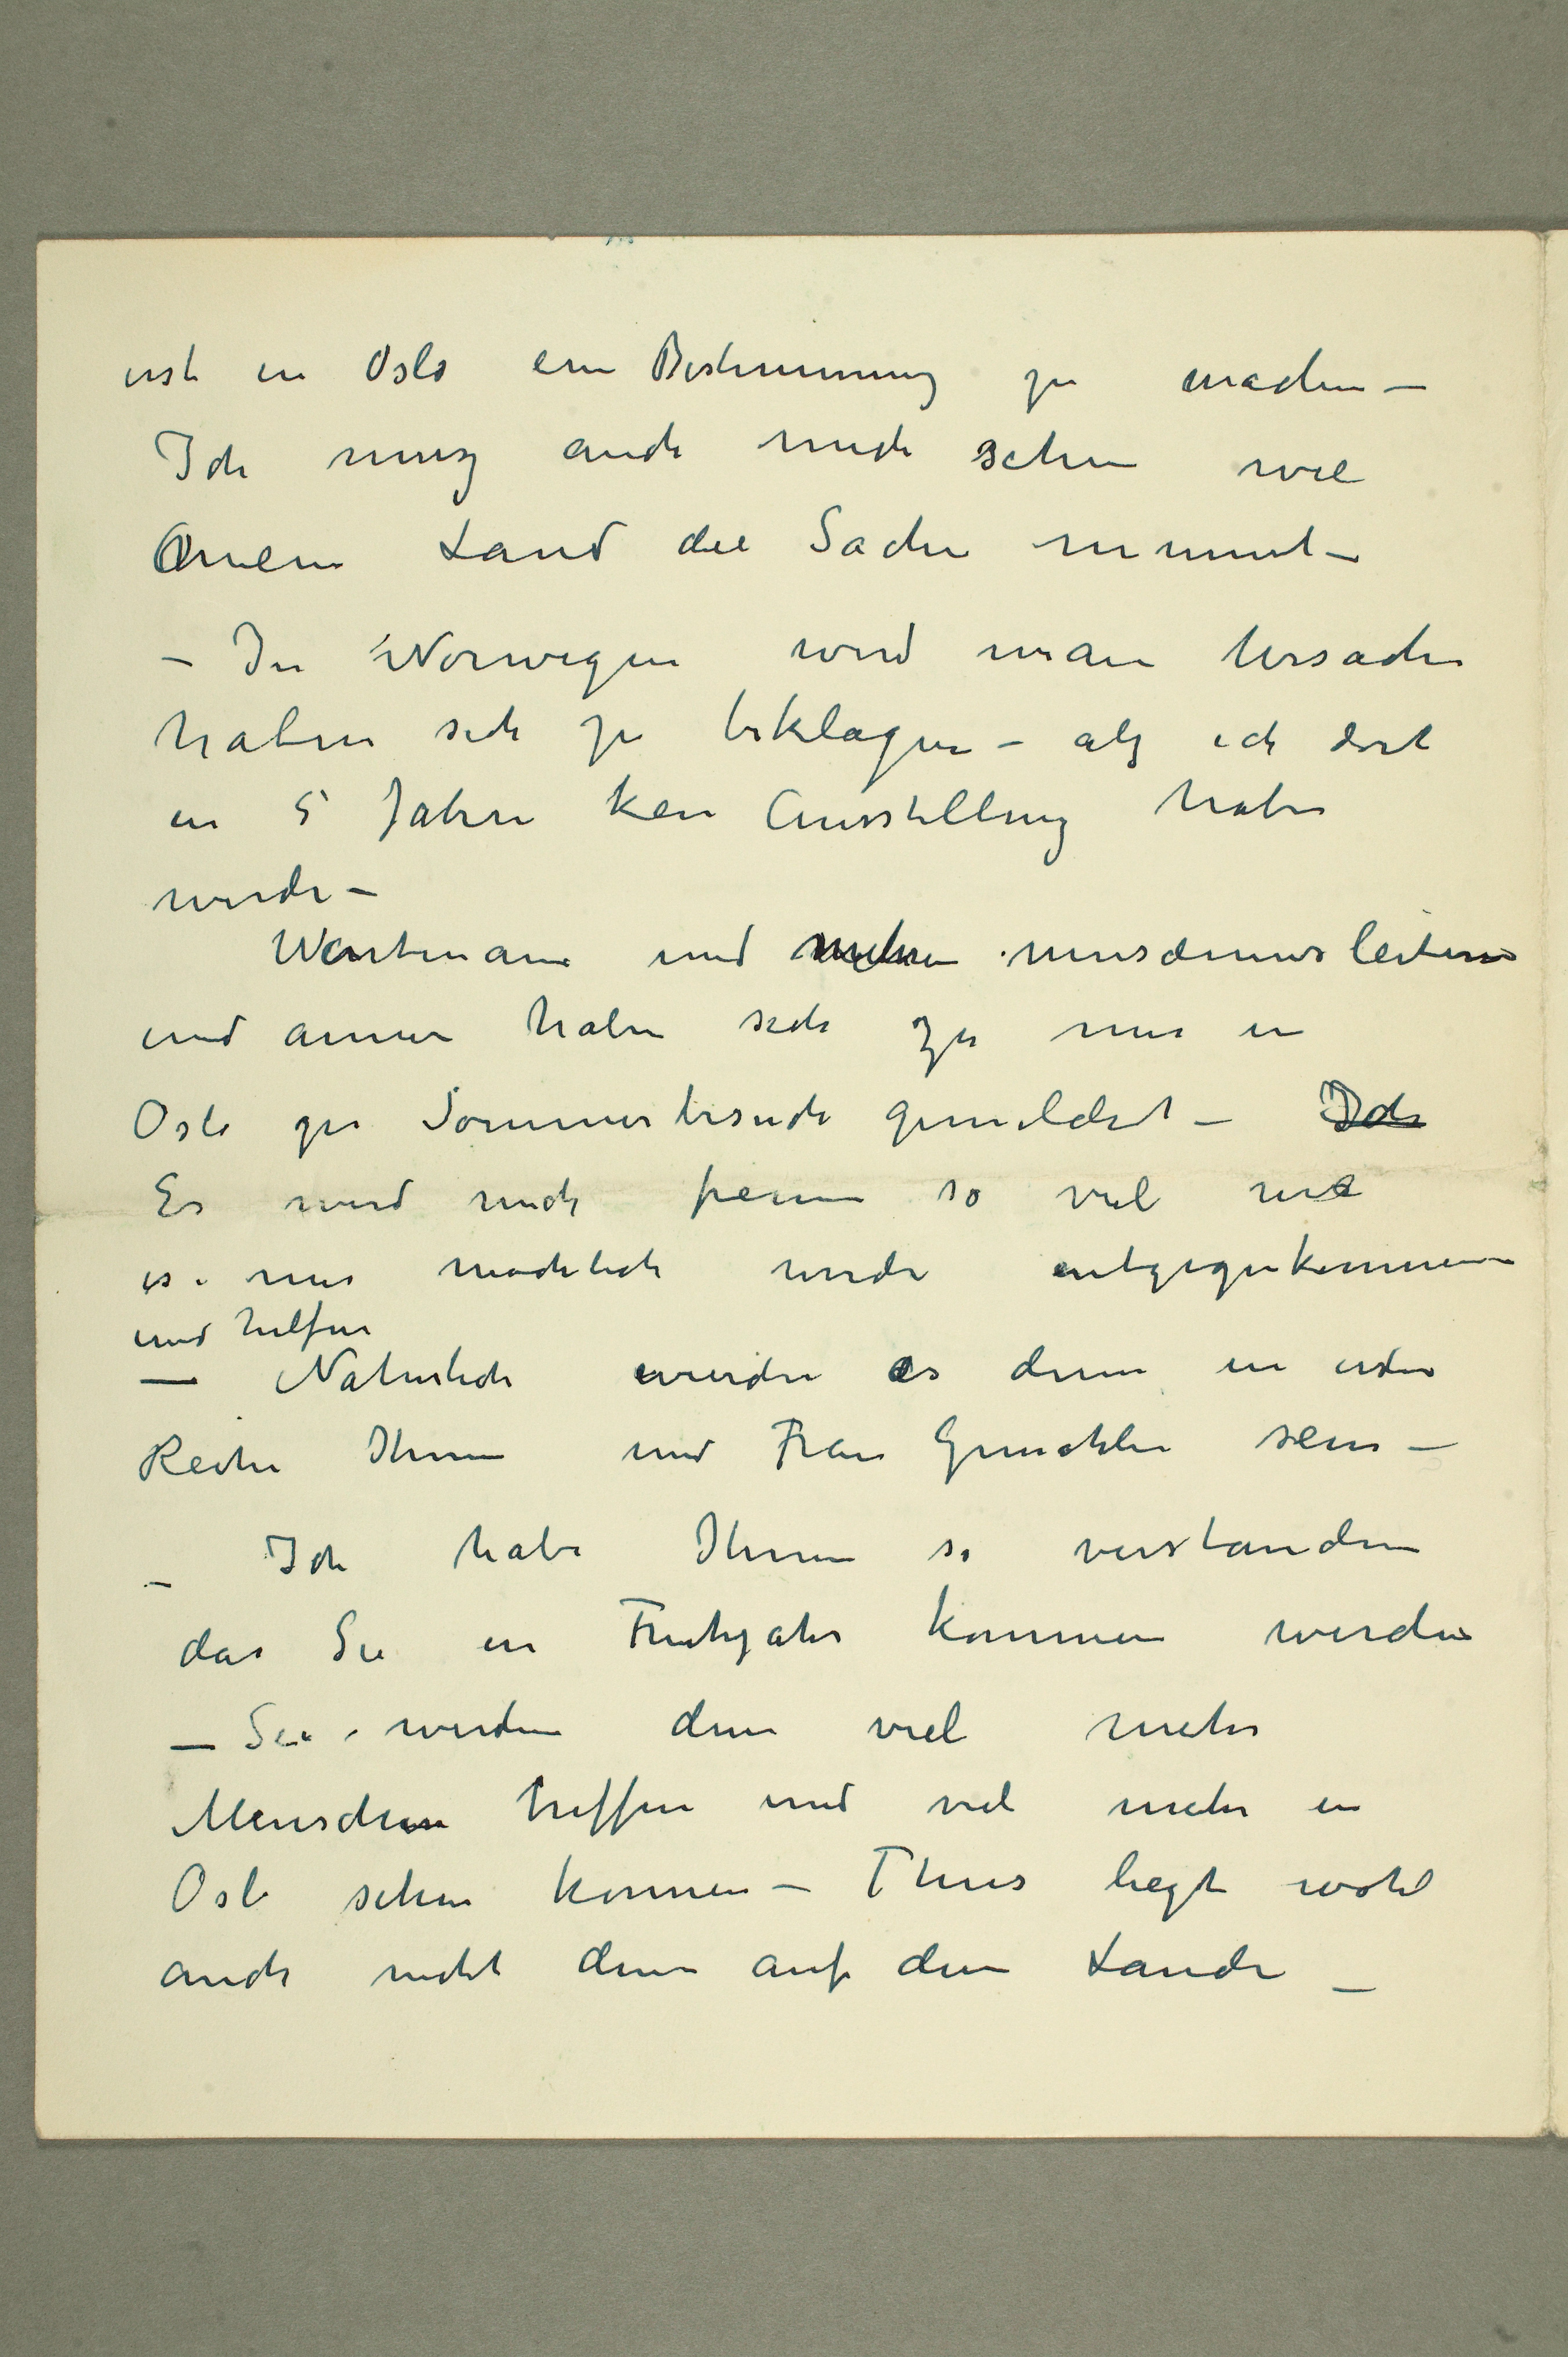 erst in Oslo ein Bestimmung zu machen –
Ich muz auch mich sehen wie
Mein Land die Sache nimmt –
– In Norwegen wird man Ursache
haben sich zu beklagen – alz ich dort
in 5 Jahren kein Ausstellung habe
werde –
Wartmann und mehre museumsleitern
und annere haben sich zu mir in
Oslo zu Sommerbesuch gemeldet – Ich
Es wird mich freuen so viel wie
es mir möchlich werde entgegenkommen
und helfen
– Naturlich wurden es denn in erster
Reihe Ihnen und Frau Gemahlin sein –
– Ich habe Ihnen so verstanden
das Sie in Fruhjahr kommen werden
– Sie werden denn viel mehr
Menschen treffen und viel mehr in
Oslo sehen konnen – Thiis liegt wohl
auch nicht denn auf dem Lande –